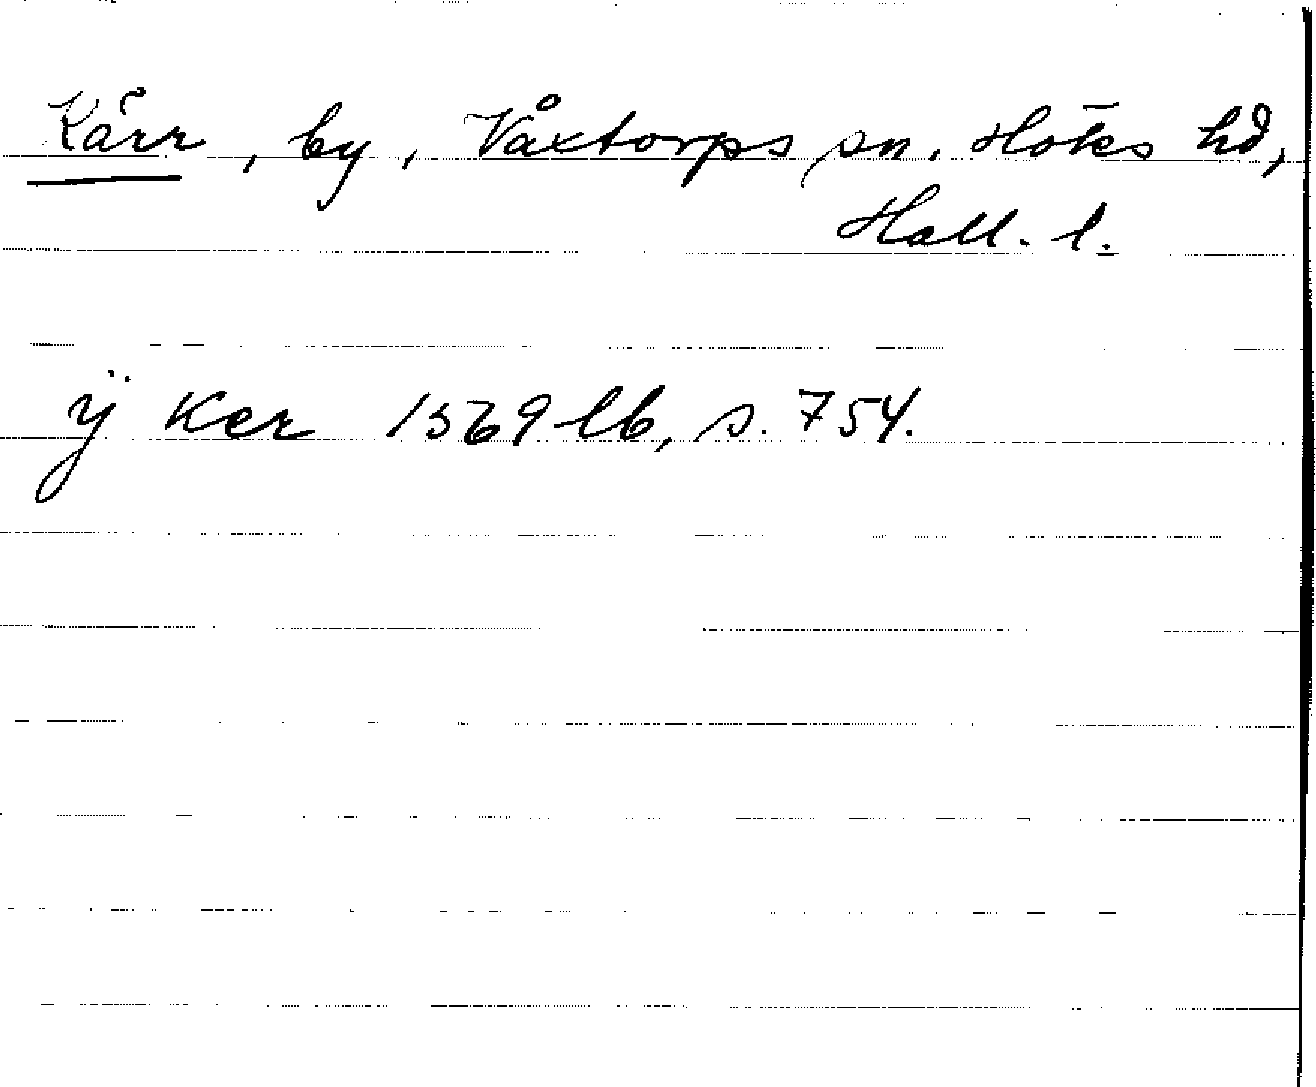 Kärr, by, Våxtorps sn, Höks hd,
Hall. l.
ÿ Ker 1569 lb, s. 754.